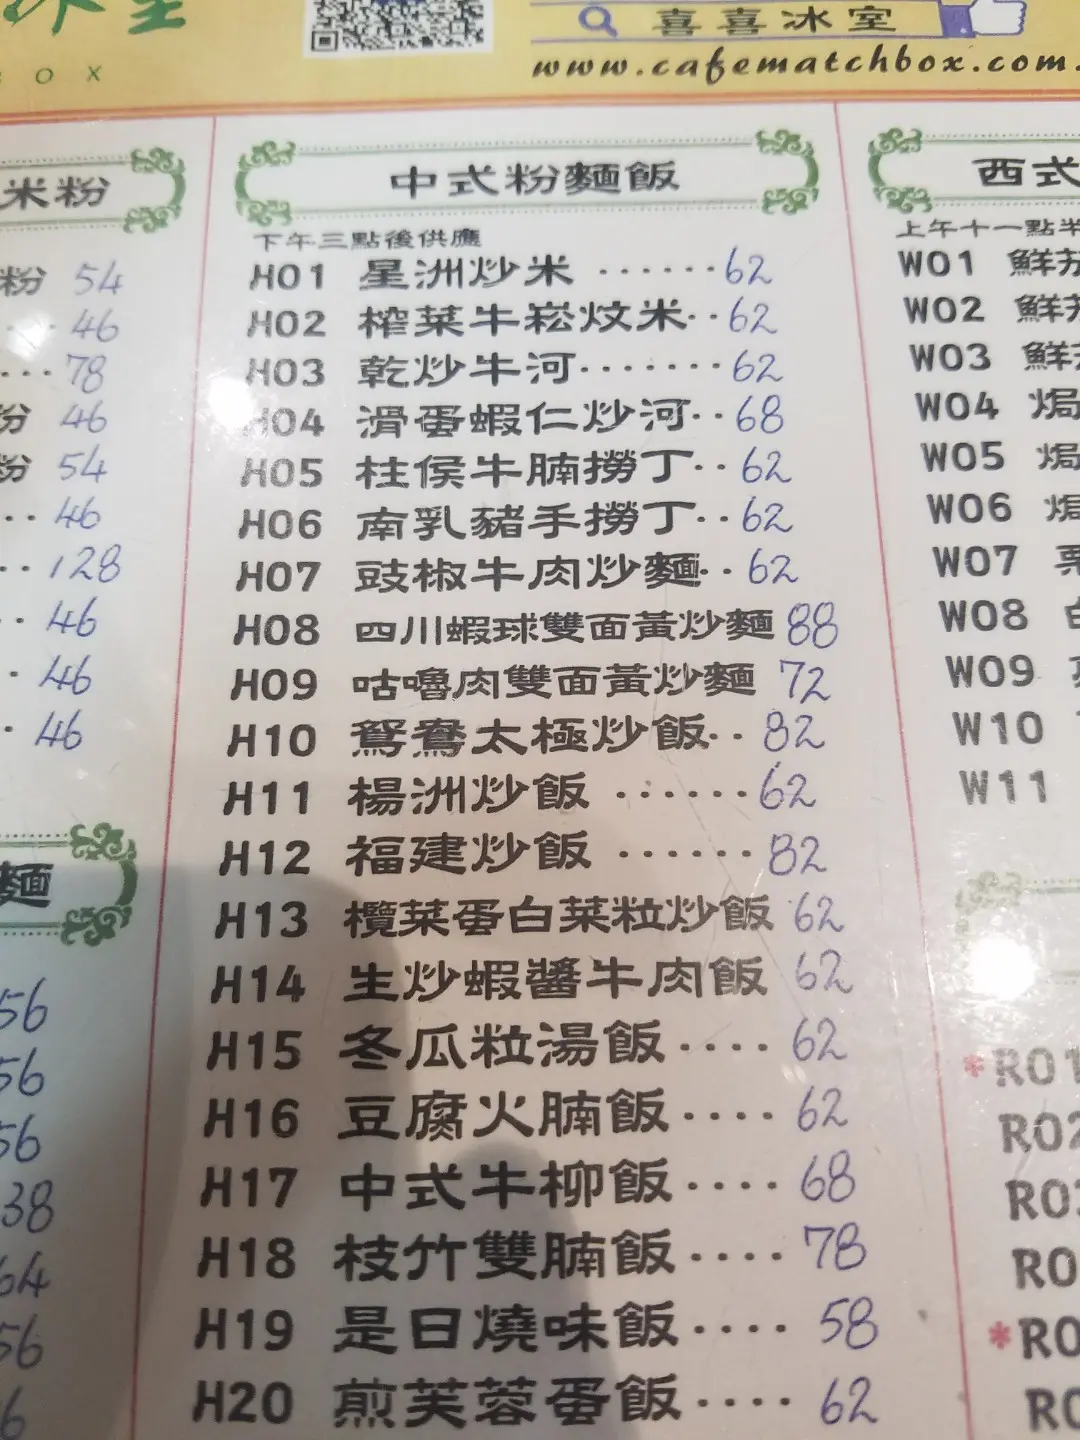 冰室
BOX
喜喜冰室
www.cafematchbox.com.
米粉
粉 54
46
78
粉 46
粉 54
46
128
46
46
46
麵
56
56
56
38
64
56
6
中式粉麵飯
下午三點後供應
H01 星洲炒米 ······62
H02 榨菜牛崧炆米··62
H03 乾炒牛河·······62
H04 滑蛋蝦仁炒河··68
H05 柱侯牛腩撈丁··62
H06 南乳豬手撈丁··62
H07 豉椒牛肉炒麵··62
H08 四川蝦球雙面黃炒麵 88
H09 咕嚕肉雙面黃炒麵 72
H10 鴛鴦太極炒飯··82
H11 楊洲炒飯 ······62
H12 福建炒飯 ······82
H13 欖菜蛋白菜粒炒飯 62
H14 生炒蝦醬牛肉飯 62
H15 冬瓜粒湯飯····62
H16 豆腐火腩飯····62
H17 中式牛柳飯····68
H18 枝竹雙腩飯····78
H19 是日燒味飯····58
H20 煎芙蓉蛋飯····62
西式
上午十一點半
W01 鮮
W02 鮮
W03 鮮
W04 焗
W05 焗
W06 焗
W07
W08
W09
W10
W11
*R01
R02
R0
R0
*R0
R0